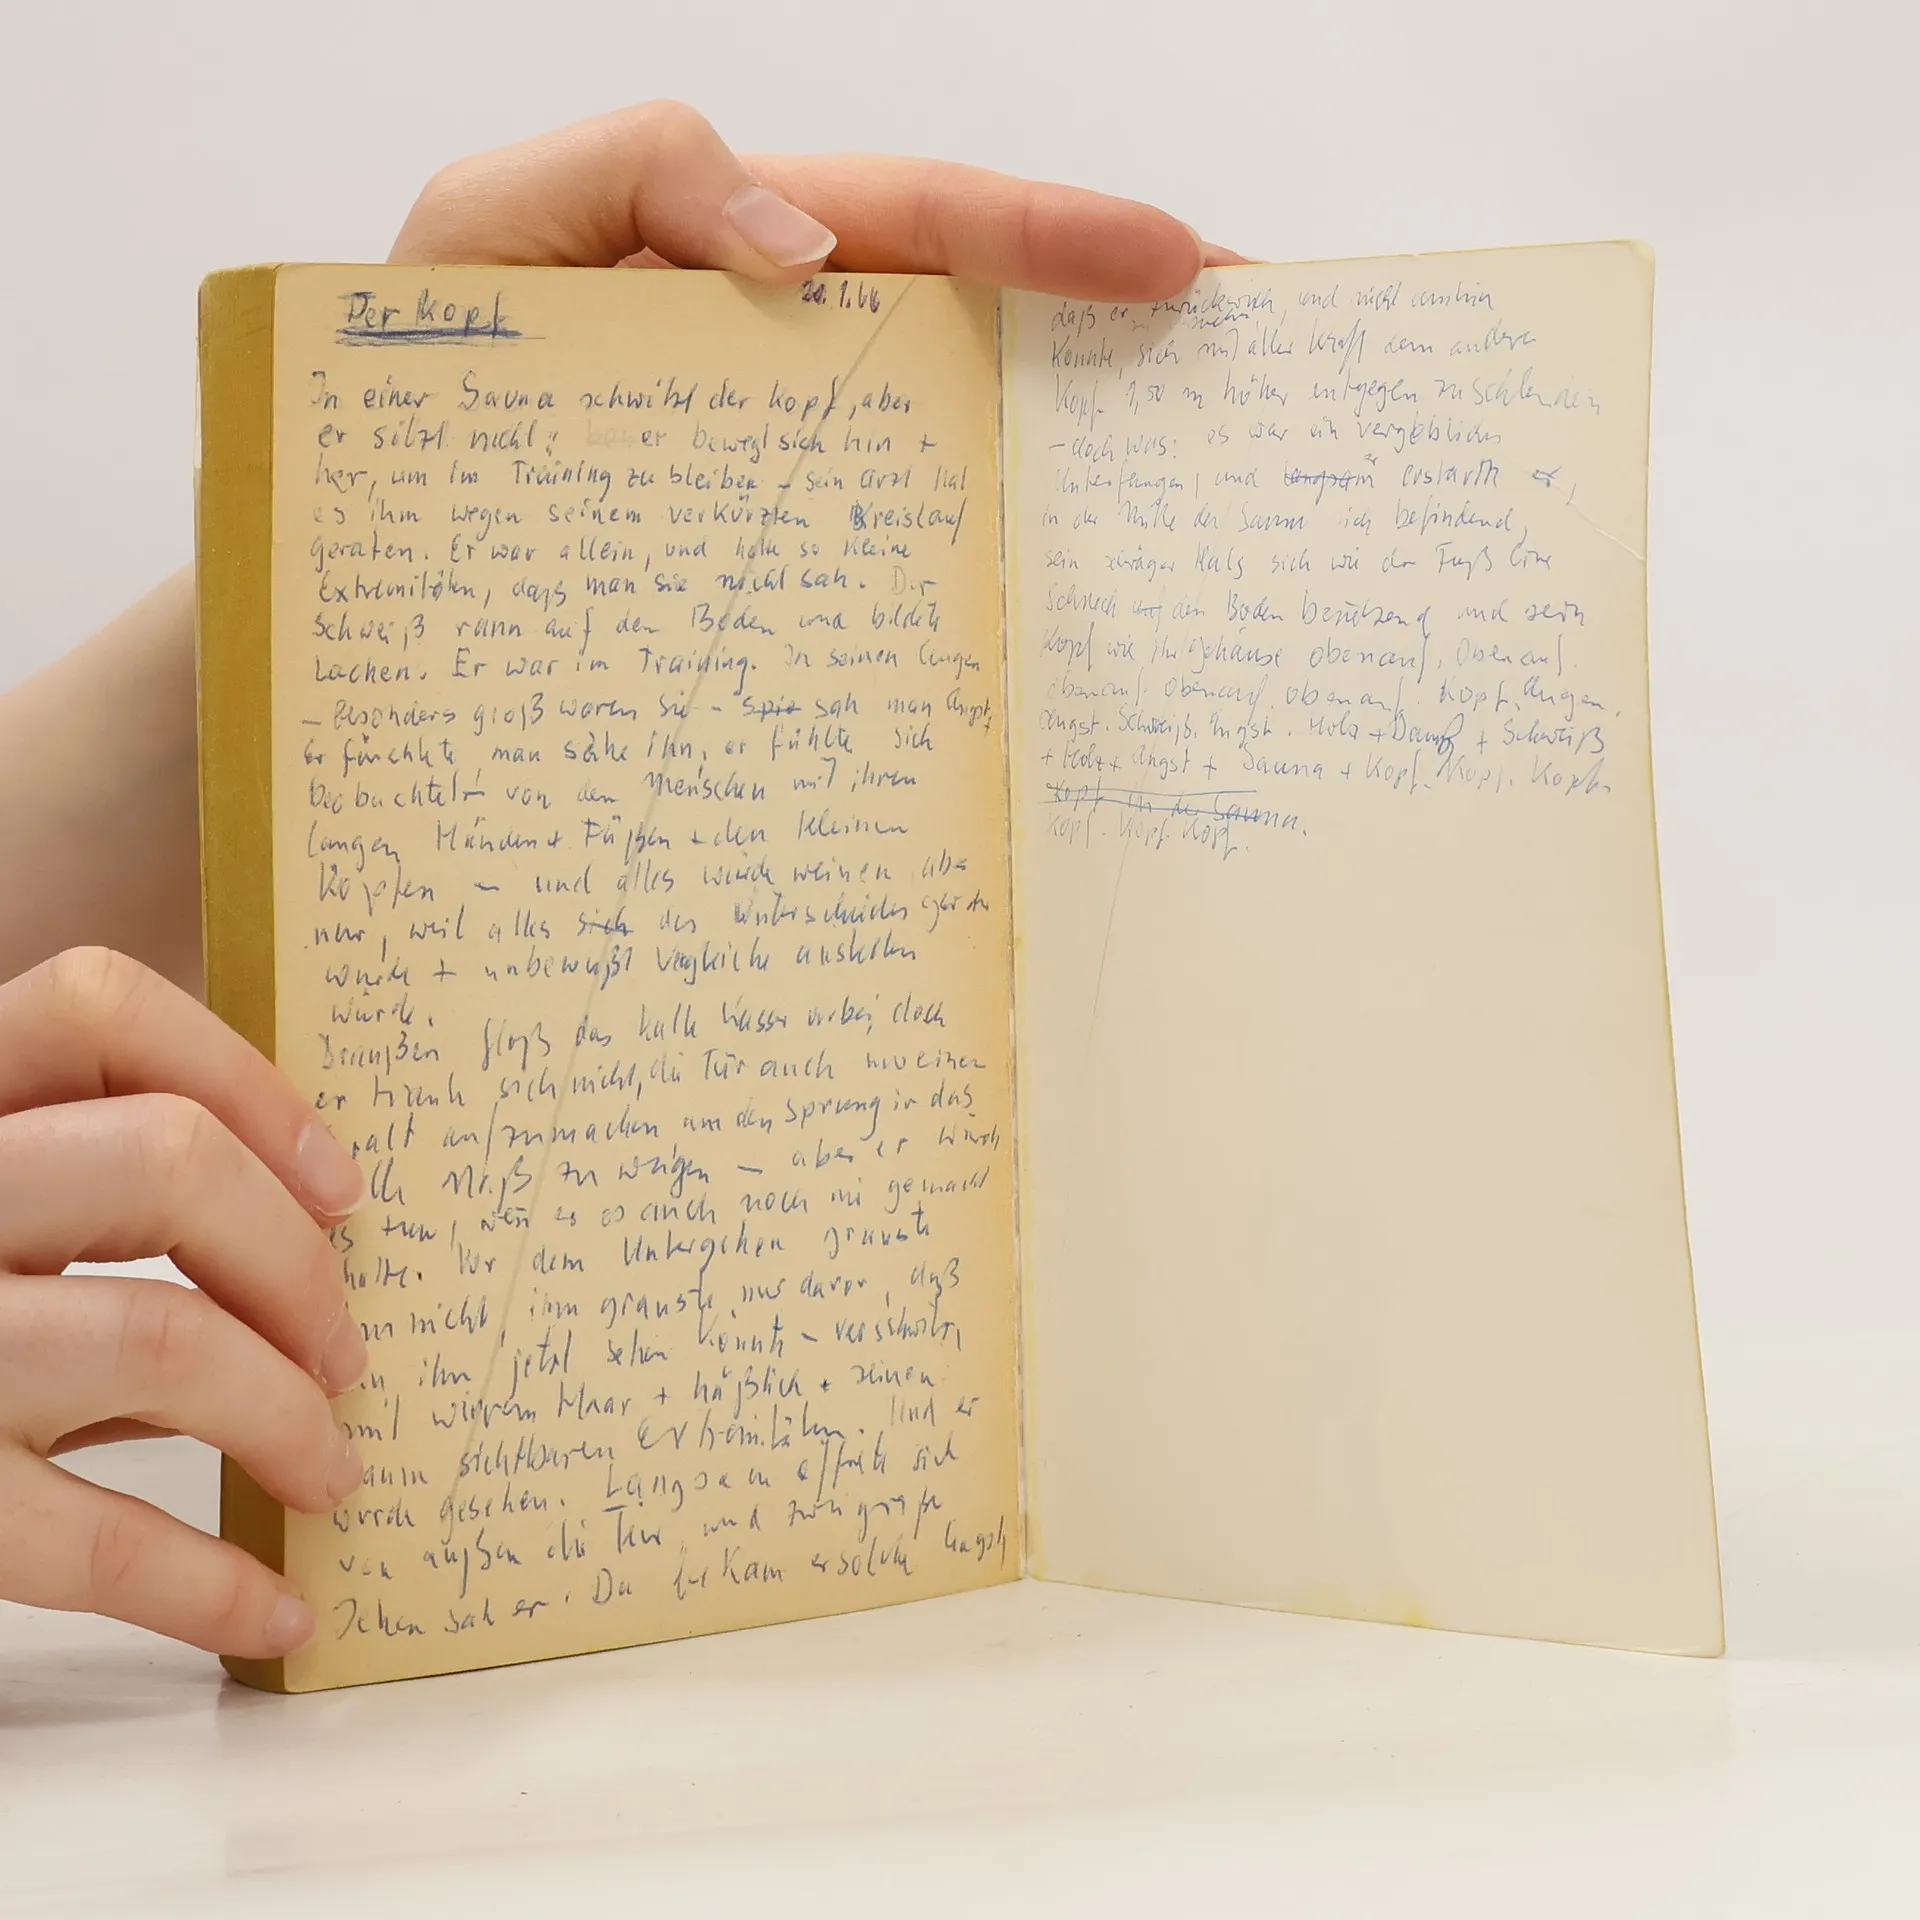 Der Kopf
20.1.66
In einer Sauna schwitzt der Kopf, aber
er sitzt nicht; er bewegt sich hin +
her, um im Training zu bleiben – sein Arzt hat
es ihm wegen seinem verkürzten Kreislauf
geraten. Er war allein, und hatte so kleine
Extremitäten, daß man sie nicht sah. Der
Schweiß rann auf den Boden und bildete
Lachen. Er war im Training. In seinen Augen
– Besonders groß waren sie – sah man Angst,
Er fürchtete, man sähe ihn, er fühlte sich
beobachtet von den Menschen mit ihren
langen Händen + Füßen + den kleinen
Köpfen – und alles würde weinen aber
nur, weil alles sich des Unterschiedes
wurde + unbewußt Vergleiche anstellen
würde.
Draußen floß das kalte Wasser vorbei, doch
er traute sich nicht, die Tür auch nur einen
Spalt aufzumachen um den Sprung in das
Naß zu wagen – aber er würde
es tun, wenn er es auch noch nie gemacht
hatte. Vor dem Untergehen grauste
nicht, ihm grauste nur davor, daß
ihn jetzt sehen könnte – verschwitzt,
mit wirrem Haar + häßlich + seinen
kaum sichtbaren Extremitäten. Und er
wurde gesehen. Langsam öffnete sich
von außen die Tür und zwei große
Zehen sah er. Da bekam er solche Angst
daß er zurückwich, und nicht umhin
konnte, sich mit aller Kraft dem andern
Kopf 1,50 m höher entgegen zu schleudern
– doch was: es war ein vergebliches
Unterfangen, und langsam erstarrte er,
in der Mitte der Sauna sich befindend,
sein Hals sich wie der Fuß eine
Schneck auf den Boden benützend und sein
Kopf wie ihr Gehäuse obenauf. Obenauf.
obenauf. Obenauf. obenauf. Kopf. Augen.
Angst. Schweiß. Angst. Holz + Dampf + Schweiß
+ Holz + Angst + Sauna + Kopf. Kopf. Kopf.
Kopf in der Sauna.
Kopf. Kopf. Kopf.